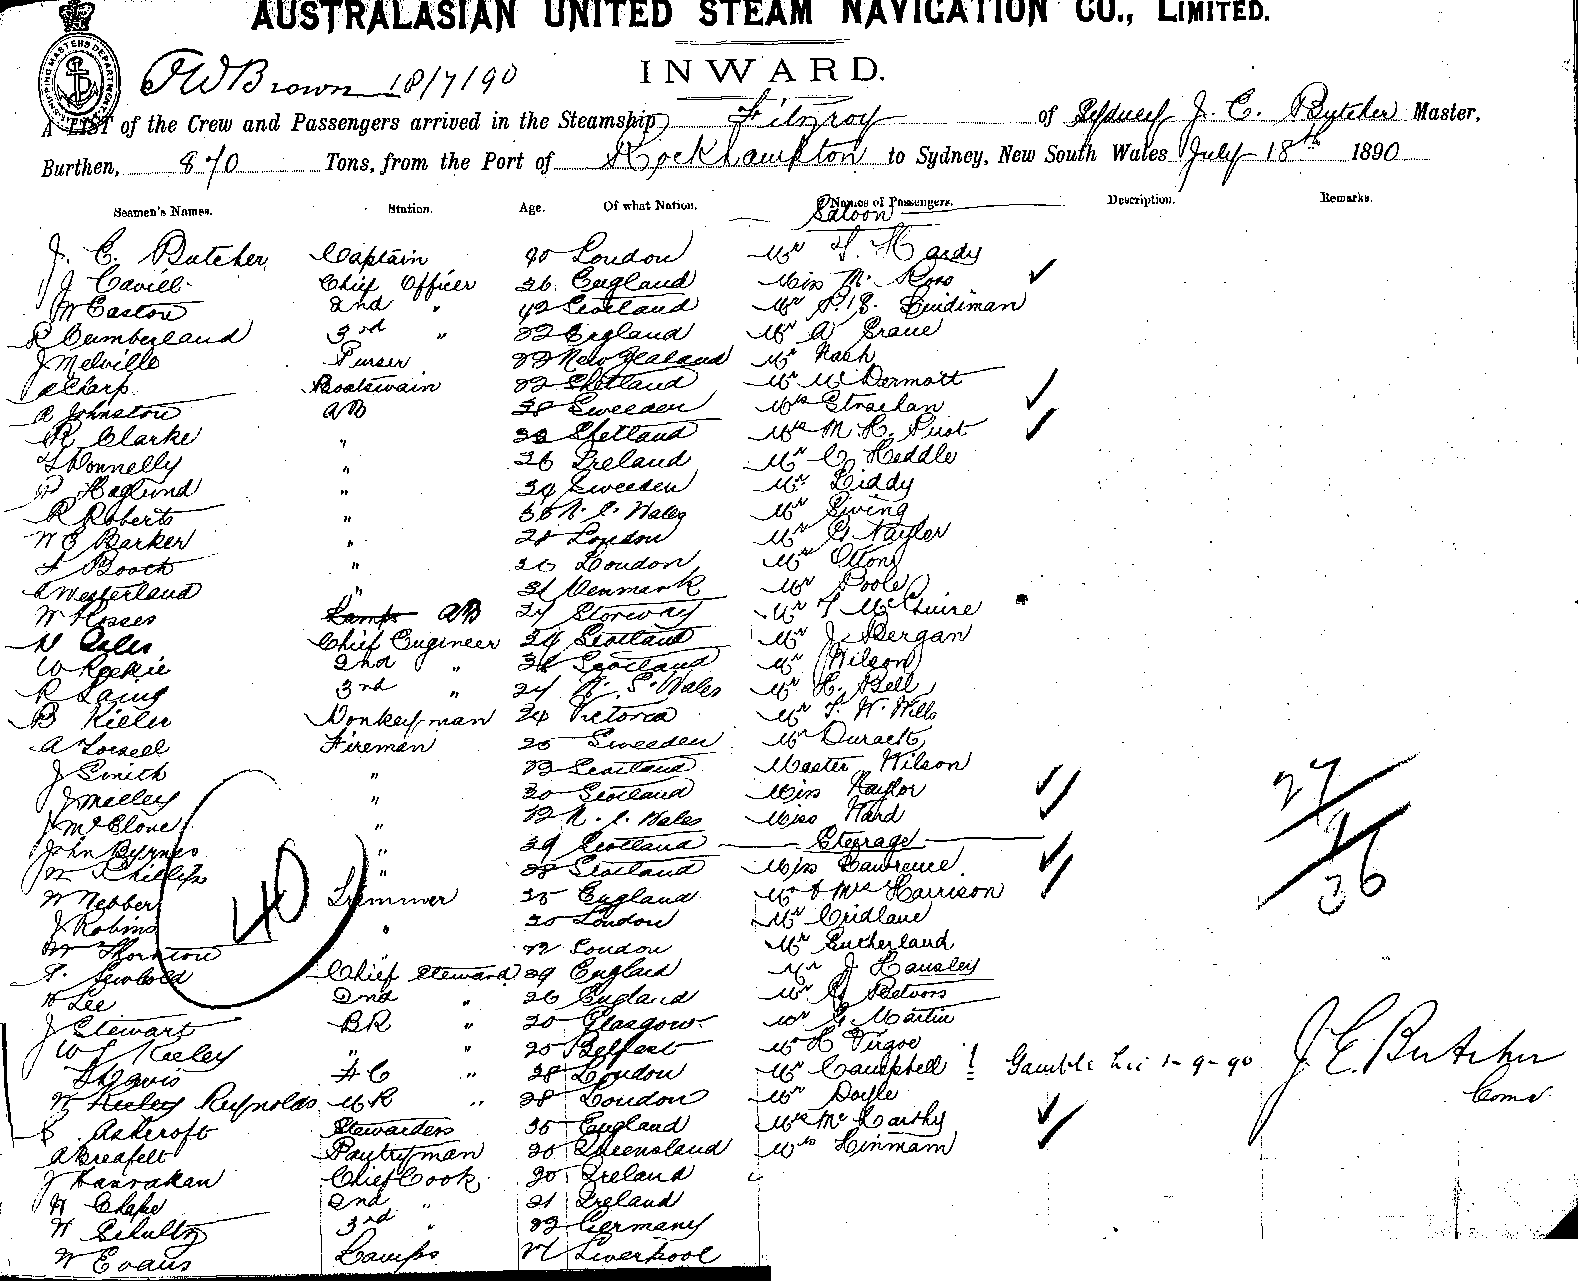 AUSTRALASIAN UNITED STEAM NAVIGATION CO., LIMITED.
SHIPPING MASTERS DEPARTMENT
INWARD.
Brown 18/7/90
A LIST of the Crew and Passengers arrived in the Steamship Fitzroy of Sydney J. C. Butcher Master,
Burthen, 870 Tons, from the Port of Rockhampton to Sydney, New South Wales July 18th 1890
Seamen's Names. Station. Age. Of what Nation. Names of Passengers. Description. Remarks.
Saloon
J. C. Butcher Captain 40 London Mr T. Hardy
J Cavill Chief Officer 36 England Miss M. Ross
W Easton 2nd " 42 Scotland Mr
R Cumberland 3rd " 32 England Mr A Graue
J Melville Purser 32 New Zealand Mr Nash
Sharp Boatswain 32 Shetland Mr McDermott
A Johnston AB 38 Sweeden Mrs Strachan
R Clarke " 33 Shetland Mrs M. R.
Donnelly " 26 Ireland Mr C Heddle
P Haglund " 34 Sweeden Mr Liddy
R Roberts " N. S. Wales Mr Living
W E Barker " 28 London Mr G Naylor
F Booth " 26 London Mr
A Westerland " 31 Denmark Mr Poole
W Rosses Lamps AB 27 Mr T McGuire
Chief Engineer 34 Scotland Mr J. Bergan
W Reekie 2nd " 36 Scotland Mr Wilson
R Laing 3rd " 24 N. S. Wales Mr H. Bell
B Donkeyman 24 Victoria Mr T. W. Wills
A Fireman 25 Sweeden Mr Durack
J Smith " 32 Scotland Master Wilson
J Milley " 30 Scotland Miss Naylor
J McClone " 32 N. S. Wales Miss Ward
John Byrnes " 39 Scotland Steerage
W Phillips " 38 Scotland Miss Lawrence
W Webber Trimmer 25 England Mr & Mrs Harrison
J Robins " 30 London Mr Cridlane
W Thornton " London Mr Sutherland
Chief Steward 39 England Mr J Hansley
Lee 2nd " 26 England Mr
J Stewart BR " 20 Glasgow Mr G. Martin
W J Keeley " " 25 Belfast Mr H Virgoe
Davis FC " 28 London Mr Campbell ! Gamble 1-9-90
W Keeley Reynolds MR " 28 London Mr Doyle
Ashcroft Stewardess 35 England Mrs McCarthy
A Pantryman 20 Queensland Miss Hinmam
J Hanrahan Chief Cook 30 Ireland
2nd " 21 Ireland
W Schultz 3rd " 32 Germany
W Evans Lamps Liverpool
40
27
9
36
J. C. Butcher
Comd